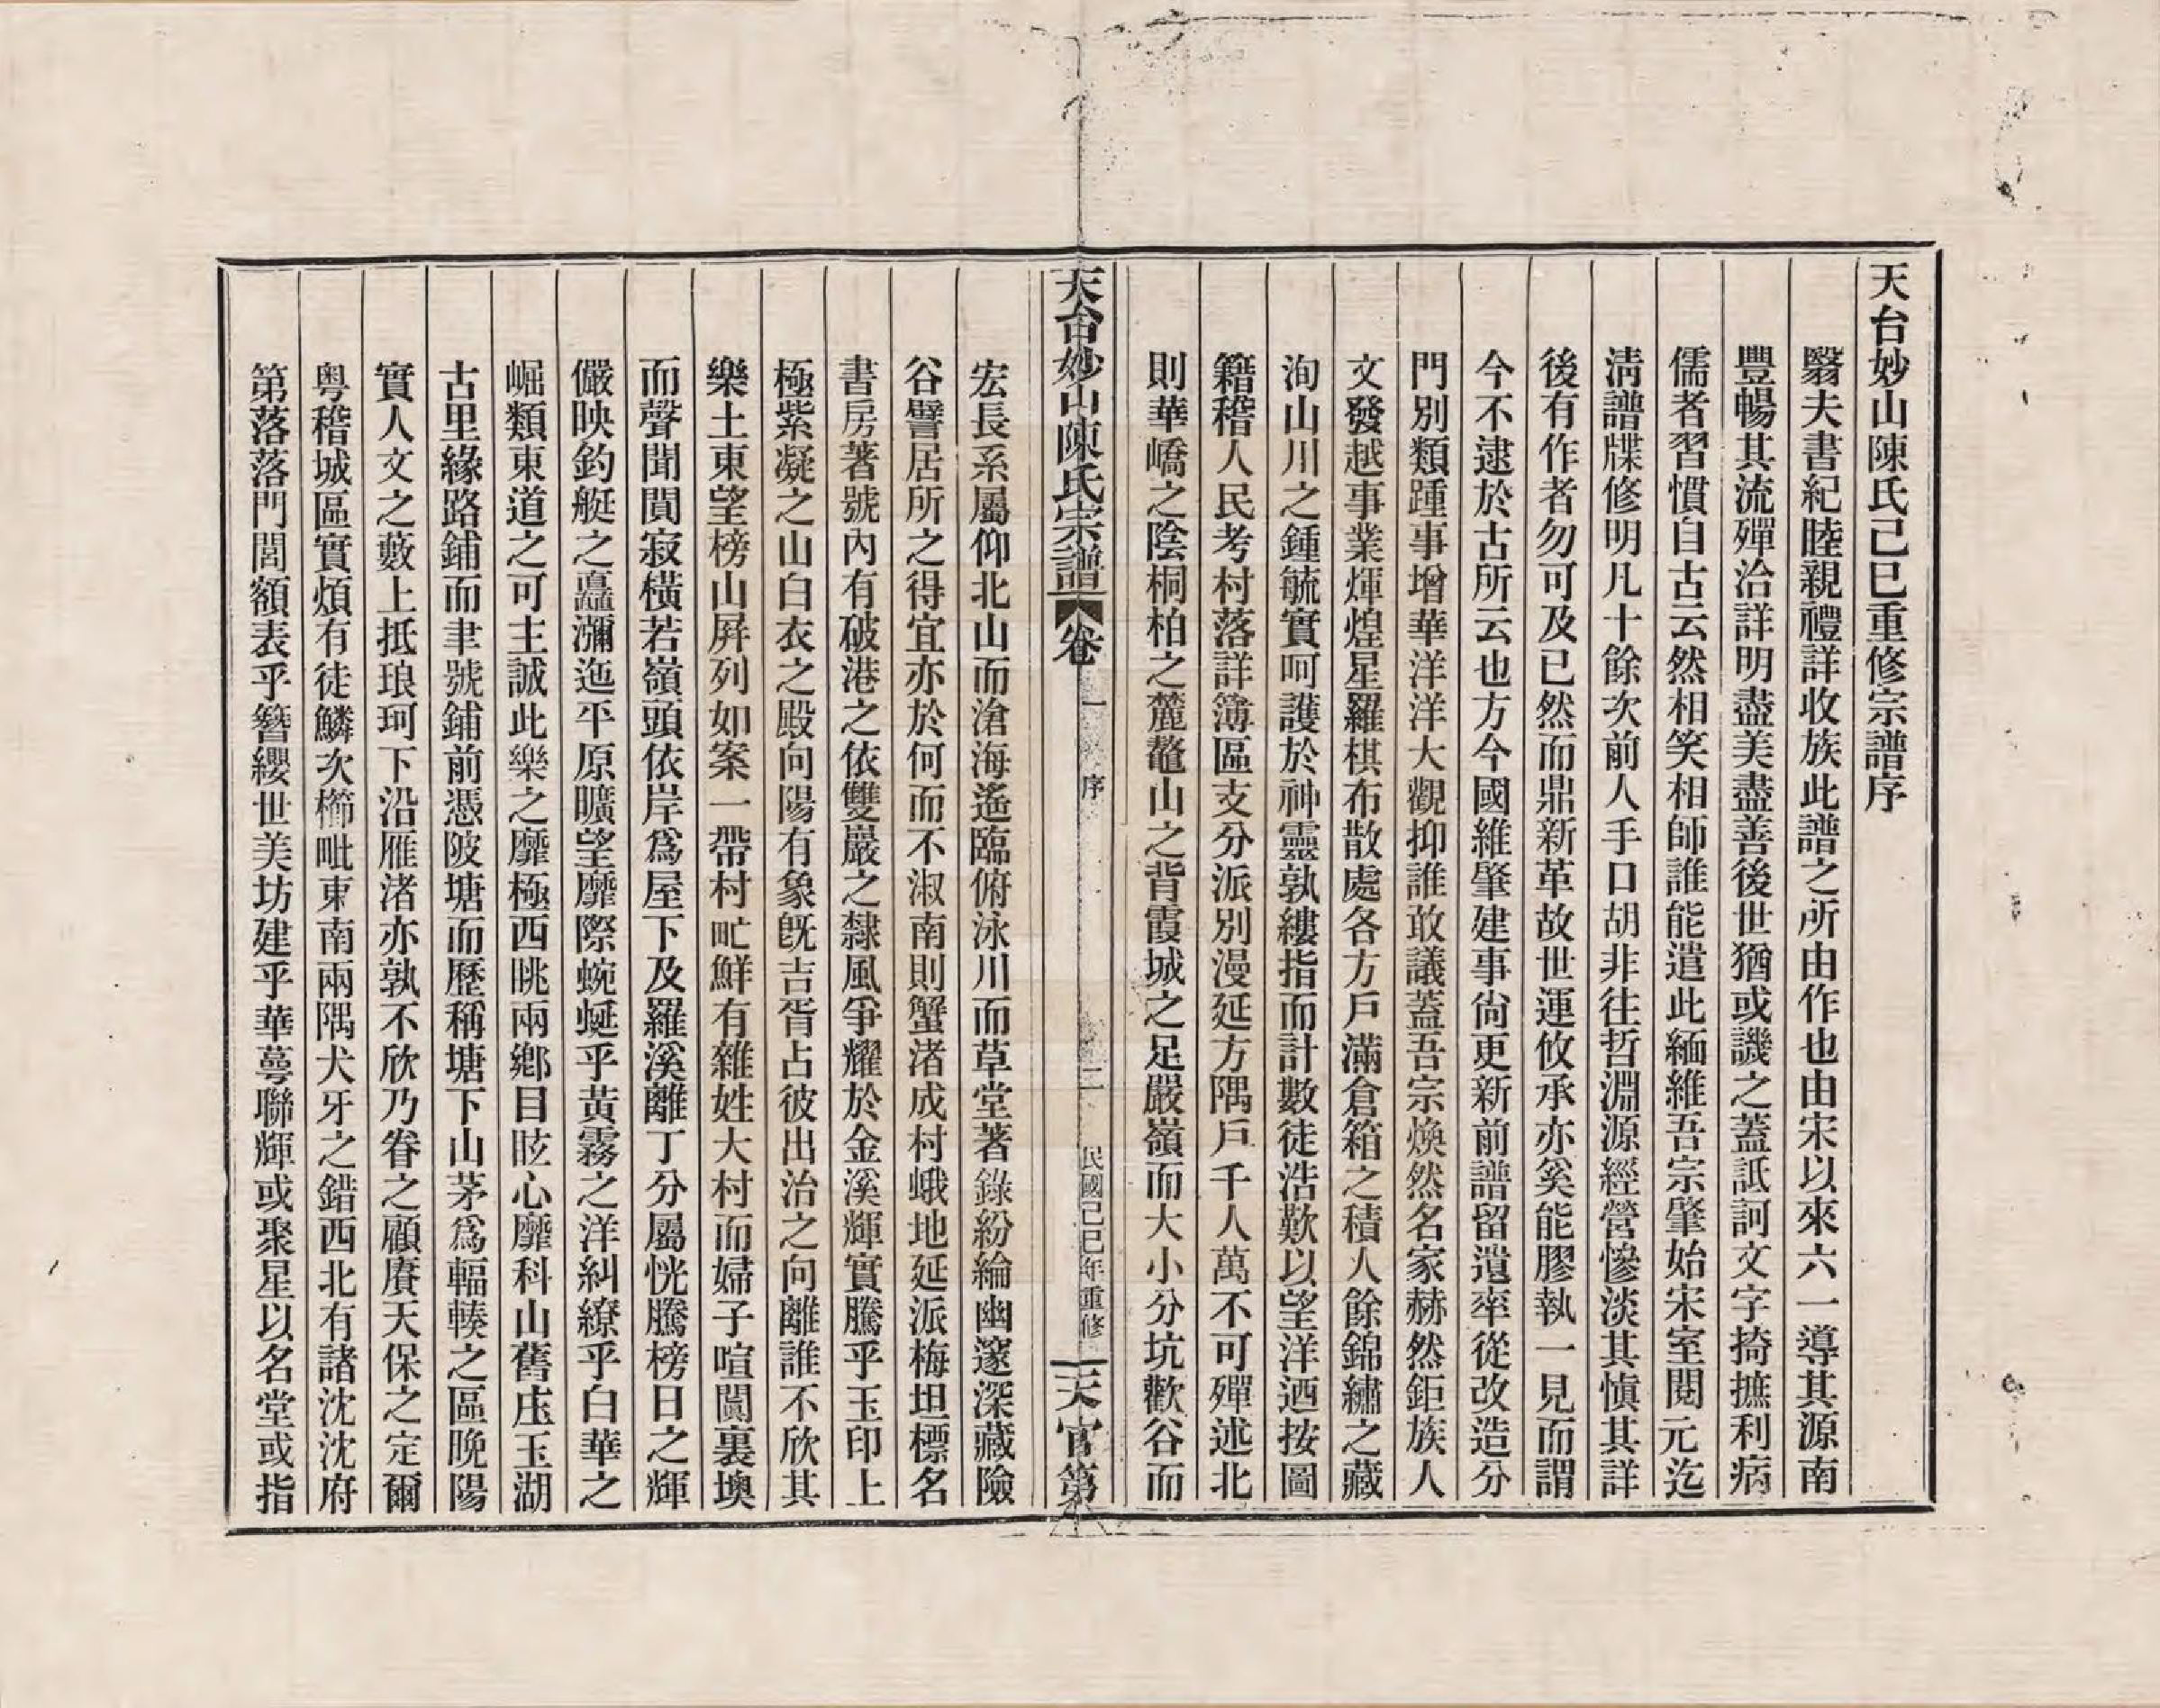 天台妙山陳氏己巳重修宗譜序
翳夫書紀睦親禮詳收族此譜之所由作也由宋以來六一導其源南
豐暢其流殫洽詳明盡美盡善後世猶或譏之蓋詆訶文字掎摭利病
儒者習慣自古云然相笑相師誰能遣此緬維吾宗肇始宋室閱元迄
清譜牒修明凡十餘次前人手口胡非往哲淵源經營慘淡其愼其詳
後有作者勿可及已然而鼎新革故世運攸承亦奚能膠執一見而謂
今不逮於古所云也方今國維肇建事尙更新前譜留遺率從改造分
門別類踵事增華洋洋大觀抑誰敢議蓋吾宗煥然名家赫然鉅族人
文發越事業煇煌星羅棋布散處各方戶滿倉箱之積人餘錦繡之藏
洵山川之鍾毓實呵護於神靈孰縷指而計數徒浩歎以望洋迺按圖
籍稽人民考村落詳簿區支分派別漫延方隅戶千人萬不可殫述北
則華嶠之陰桐柏之麓鼇山之背霞城之足嚴嶺而大小分坑歡谷而
天台妙山陳氏宗譜 卷一 序 二 民國己巳年重修 天官第
宏長系屬仰北山而滄海遙臨俯泳川而草堂著錄紛綸幽邃深藏險
谷譬居所之得宜亦於何而不淑南則蟹渚成村蛾地延派梅坦標名
書房著號內有破港之依雙巖之隸風爭耀於金溪輝實騰乎玉印上
極紫凝之山白衣之殿向陽有象旣吉胥占彼出治之向離誰不欣其
樂土東望榜山屛列如案一帶村甿鮮有雜姓大村而婦子喧闐裏墺
而聲聞閴寂橫若嶺頭依岸爲屋下及羅溪離丁分屬恍騰榜日之輝
儼映釣艇之矗瀰迤平原曠望靡際蜿蜒乎黃霧之洋糾繚乎白華之
崛類東道之可主誠此樂之靡極西眺兩鄕目眩心靡科山舊庄玉湖
古里緣路鋪而聿號鋪前憑陂塘而歷稱塘下山茅爲輻輳之區晚陽
實人文之藪上抵琅珂下沿雁渚亦孰不欣乃眷之顧賡天保之定爾
粵稽城區實煩有徒鱗次櫛毗東南兩隅犬牙之錯西北有諸沈沈府
第落落門閭額表乎簪纓世美坊建乎華萼聯輝或聚星以名堂或指